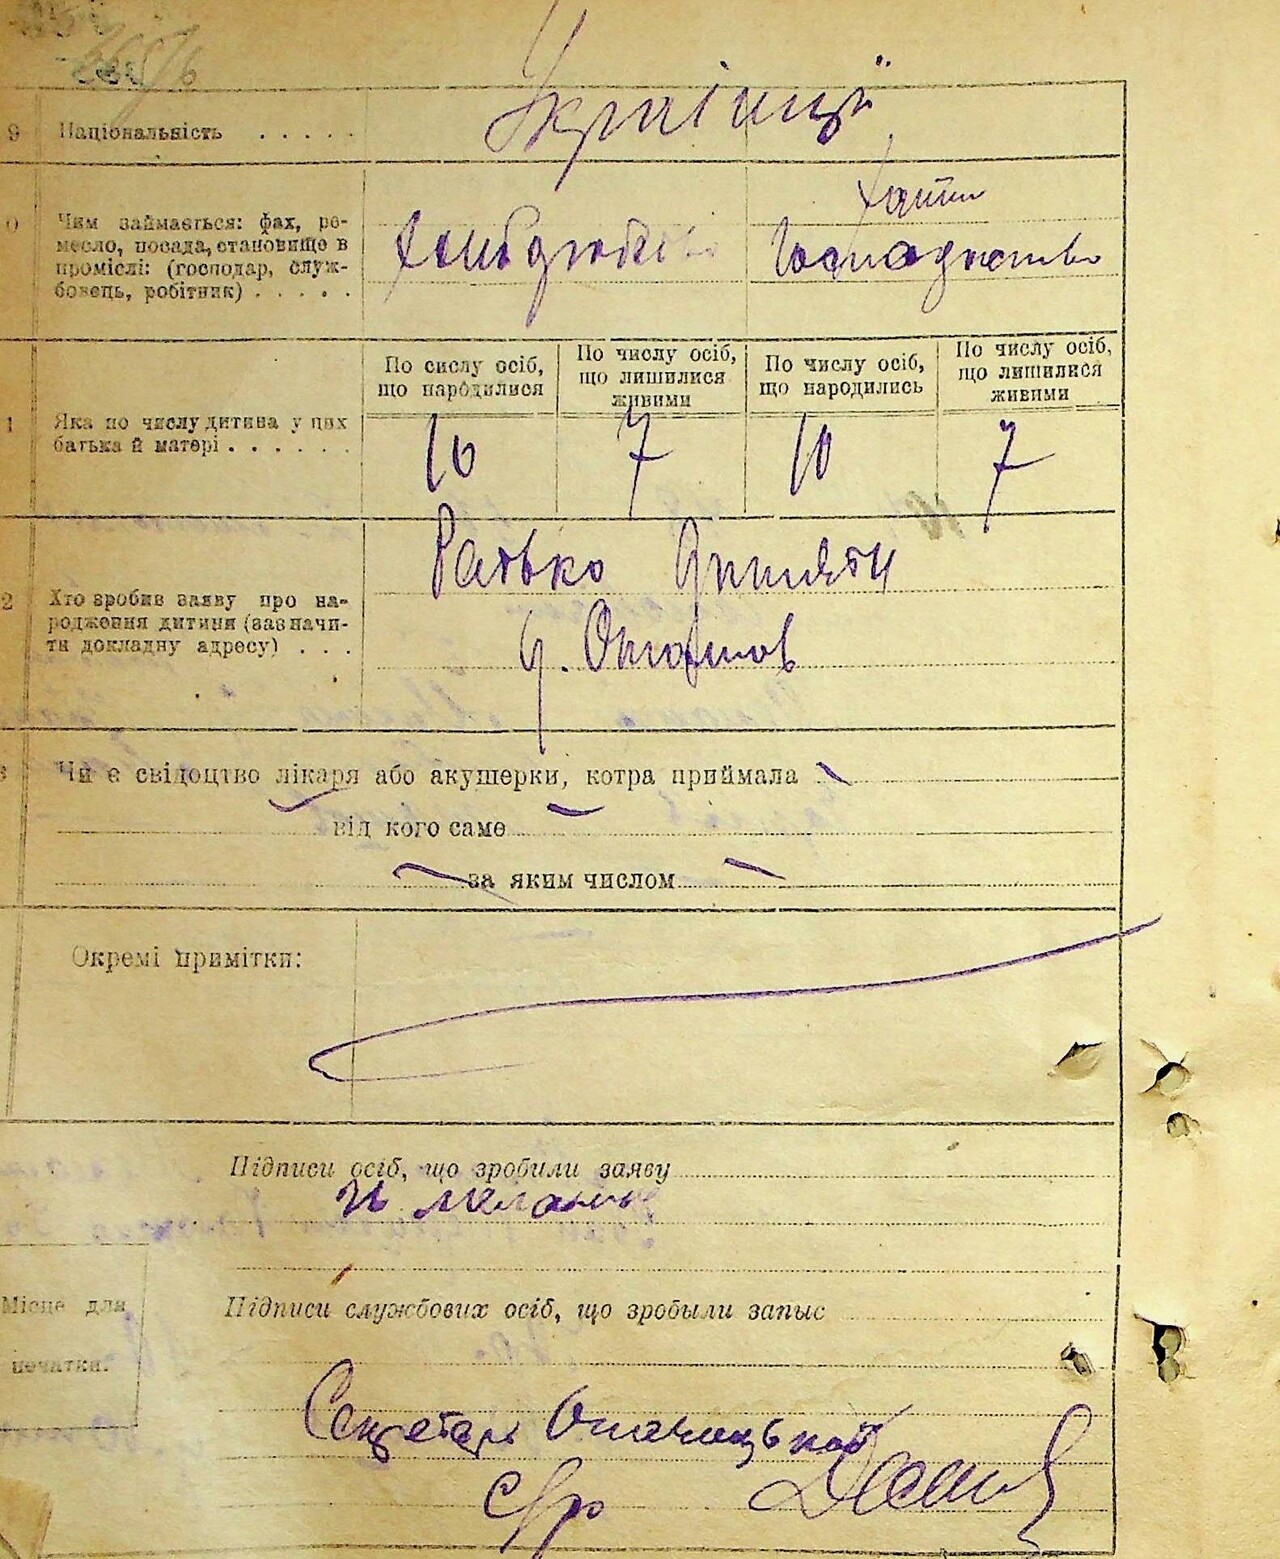 9 Національність . . . . . Українці
Хатнє
Чим займається: фах, ре-
месло, посада, становище в
проміслі: (господар, служ-
бовець, робітник) . . . . .
Хлібороб Господарство
По сислу осіб, що народилися
По числу осіб, що лишилися живими
По числу осіб, що народились
По числу осіб, що лишилися живими
1 Яка по числу дитина у цих
батька й матері . . . . . .
10 7 10 7
Батько Дитяти
2 Хто зробив заяву про на-
родження дитини (зазначи-
ти докладну адресу) . . .
Чи є свідоцтво лікаря або акушерки, котра приймала
від кого саме
за яким числом
Окремі примітки:
Підписи осіб, що зробили заяву
Місце для
печатки.
Підписи службових осіб, що зробыли запыс
Секретарь
с/р